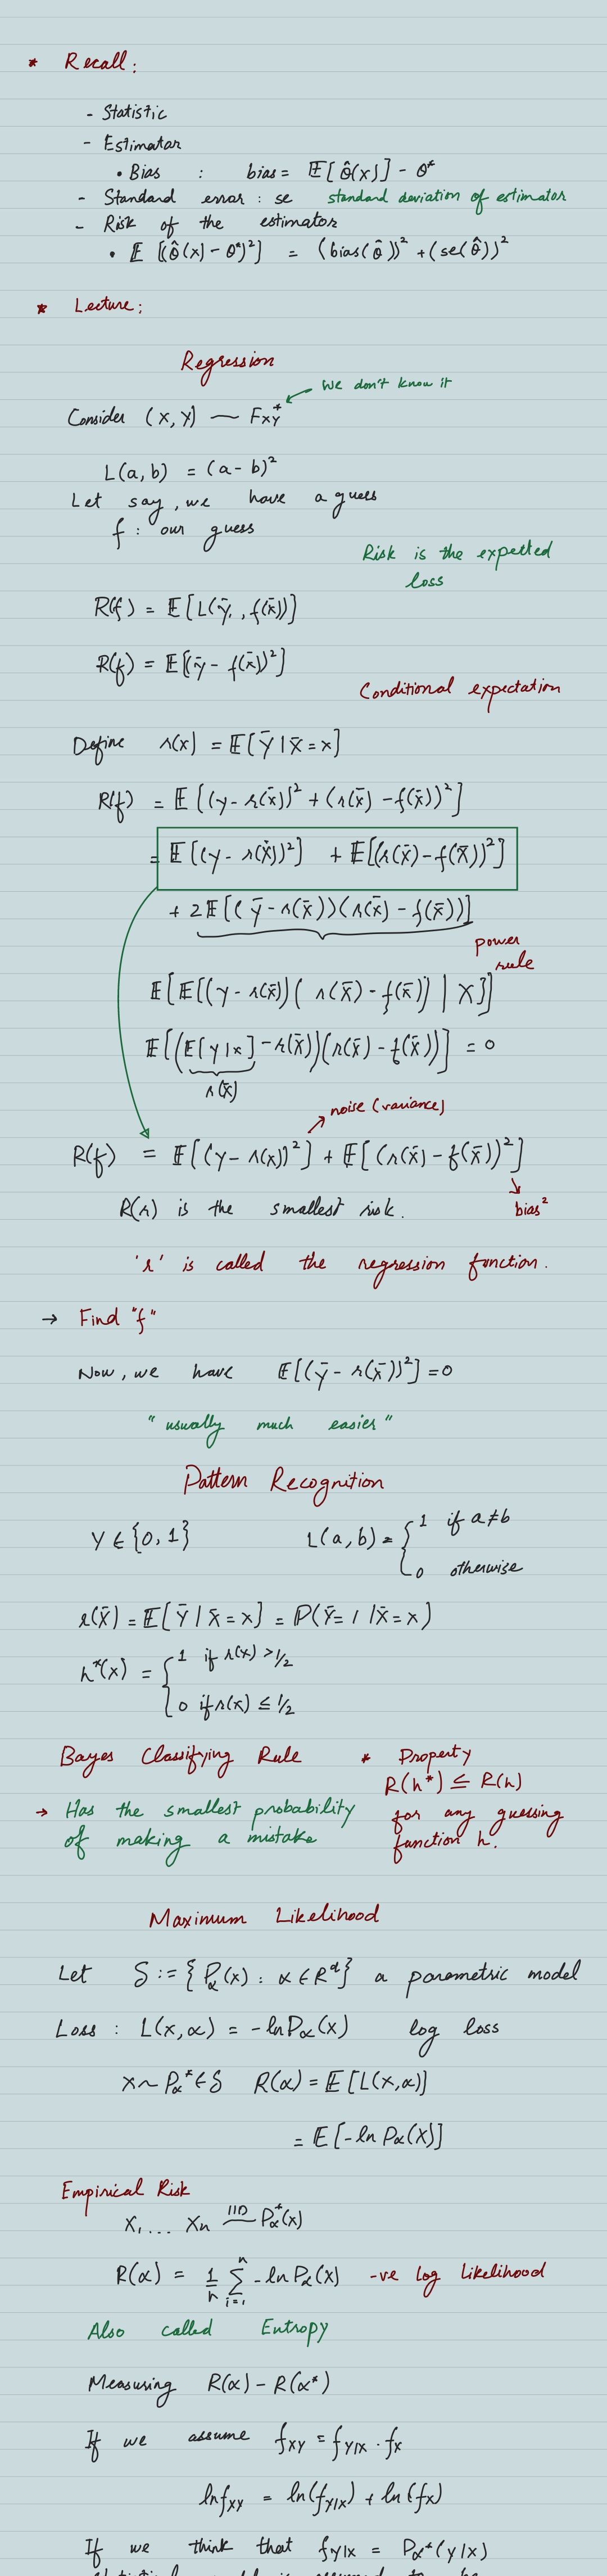 * Recall:
- Statistic
- Estimator
• Bias : bias = 𝔼[θ̂(x)] - θ*
- Standard error : se standard deviation of estimator
- Risk of the estimator
• 𝔼[(θ̂(x) - θ*)²] = (bias(θ̂))² + (se(θ̂))²
* Lecture:
Regression
We don't know it
Consider (X, Y) ~ F*XY
L(a, b) = (a - b)²
Let say, we have a guess
f : our guess
Risk is the expected
loss
R(f) = 𝔼[L(ȳ, f(x̄))]
R(f) = 𝔼[(ȳ - f(x̄))²]
Conditional expectation
Define r(x) = 𝔼[Ȳ | x̄ = x]
R(f) = 𝔼[(y - r(x̄))² + (r(x̄) - f(x̄))²]
= 𝔼[(y - r(x̄))²] + 𝔼[(r(x̄) - f(x̄))²]
+ 2𝔼[(ȳ - r(x̄))(r(x̄) - f(x̄))]
power
rule
𝔼[𝔼[(y - r(x̄))(r(x̄) - f(x̄)) | X]]
𝔼[(𝔼[y|x] - r(x̄))(r(x̄) - f(x̄))] = 0
r(x̄)
noise (variance)
R(f) = 𝔼[(y - r(x))²] + 𝔼[(r(x̄) - f(x̄))²]
R(r) is the smallest risk.
bias²
'r' is called the regression function.
→ Find "f"
Now, we have 𝔼[(ȳ - r(x̄))²] = 0
"usually much easier"
Pattern Recognition
Y ∈ {0, 1} L(a, b) = { 1 if a ≠ b
0 otherwise
r(x̄) = 𝔼[Ȳ | x̄ = x] = ℙ(Ȳ = 1 | x̄ = x)
h*(x) = { 1 if r(x) > 1/2
0 if r(x) ≤ 1/2
Bayes Classifying Rule * Property
R(h*) ≤ R(h)
→ Has the smallest probability for any guessing
of making a mistake function h.
Maximum Likelihood
Let S := {Pα(x) : α ∈ Rᵈ} a parametric model
Loss : L(x, α) = -ln Pα(x) log loss
x ~ Pα* ∈ S R(α) = 𝔼[L(x, α)]
= 𝔼[-ln Pα(X)]
Empirical Risk
X, ... Xn IID~ Pα*(x)
R(α) = 1/n Σ i=1 n -ln Pα(x) -ve log likelihood
Also called Entropy
Measuring R(α) - R(α*)
If we assume fXY = fY|X · fX
ln fXY = ln(fY|X) + ln(fX)
If we think that fY|X = Pα*(y|x)